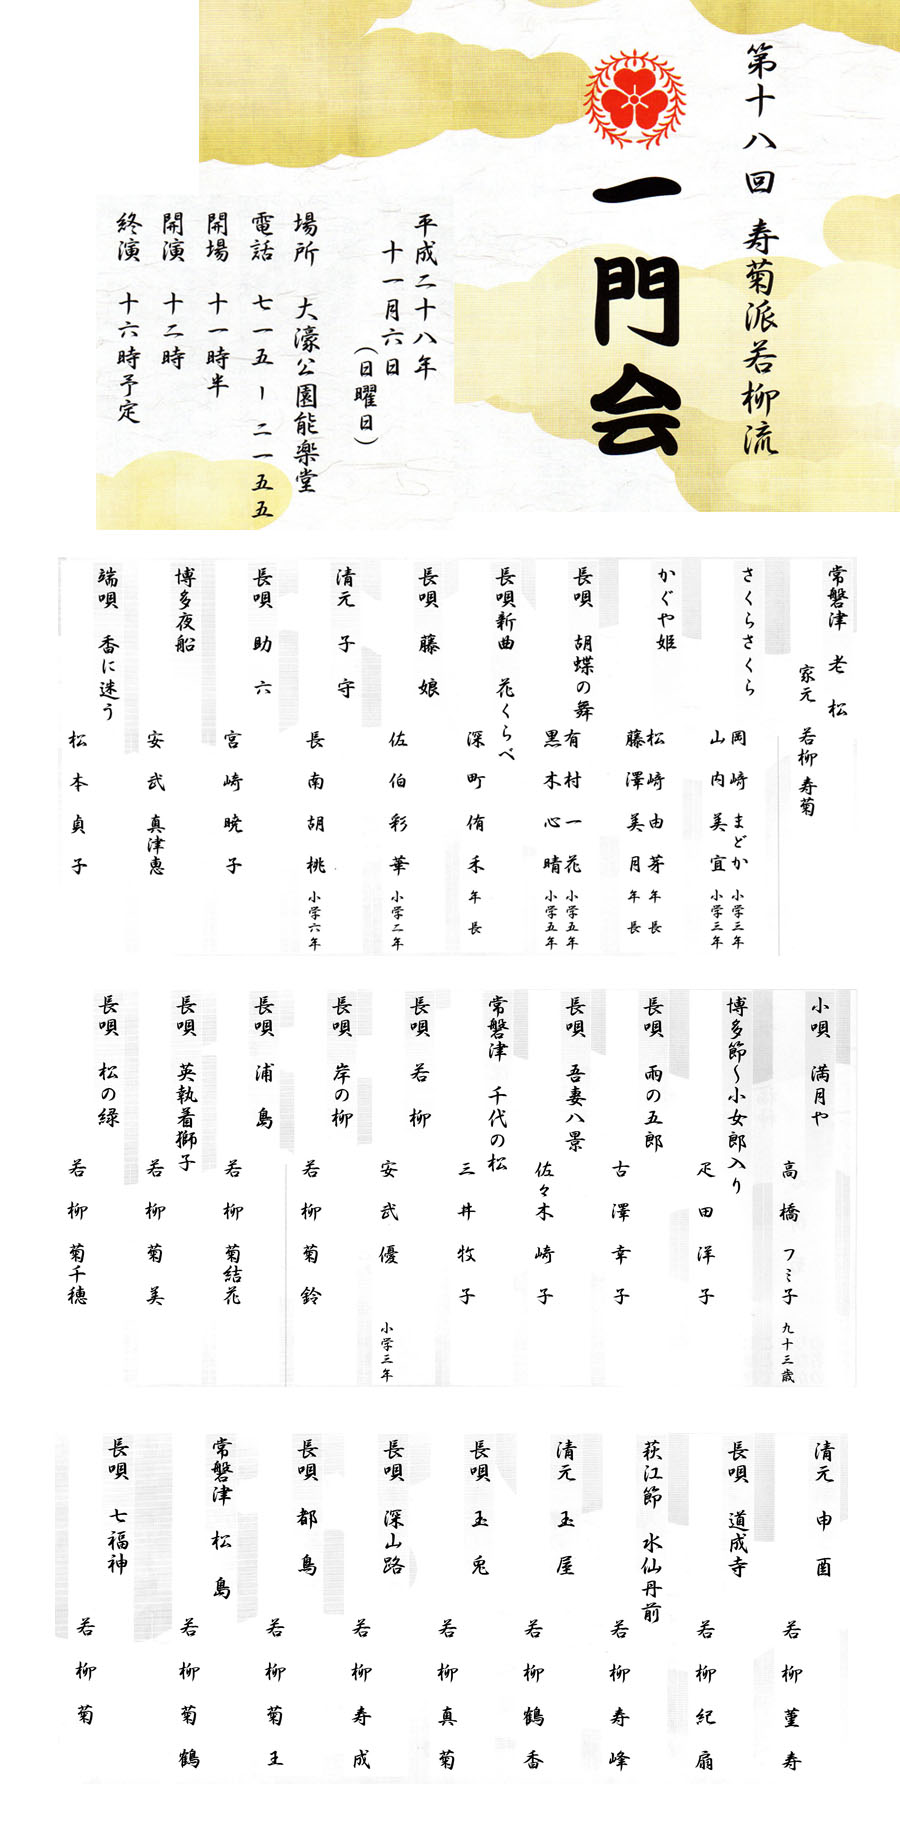 第十八回 寿菊派若柳流
一門会
平成二十八年
十一月六日
(日曜日)
場所 大濠公園能楽堂
電話 七一五ー二一五五
開場 十一時半
開演 十二時
終演 十六時予定
常磐津 老松
家元 若柳寿菊
さくらさくら
岡崎まどか 小学三年
山内美宜 小学三年
かぐや姫
松崎由芽 年長
藤澤美月 年長
長唄 胡蝶の舞
有村一花 小学五年
黒木心晴 小学五年
長唄新曲 花くらべ
深町侑禾 年長
長唄 藤娘
佐伯彩華 小学二年
清元 子守
長南胡桃 小学六年
長唄 助六
宮崎暁子
博多夜船
安武真津恵
端唄 香に迷う
松本貞子
小唄 満月や
高橋フミ子 九十三歳
博多節～小女郎入り
疋田洋子
長唄 雨の五郎
古澤幸子
長唄 吾妻八景
佐々木崎子
常磐津 千代の松
三井牧子
長唄 若柳
安武優 小学三年
長唄 岸の柳
若柳菊鈴
長唄 浦島
若柳菊結花
長唄 英執着獅子
若柳菊美
長唄 松の緑
若柳菊千穂
清元 申酉
若柳菫寿
長唄 道成寺
若柳紀扇
萩江節 水仙丹前
若柳寿峰
清元 玉屋
若柳鶴香
長唄 玉兎
若柳真菊
長唄 深山路
若柳寿成
長唄 都鳥
若柳菊王
常磐津 松島
若柳菊鶴
長唄 七福神
若柳菊